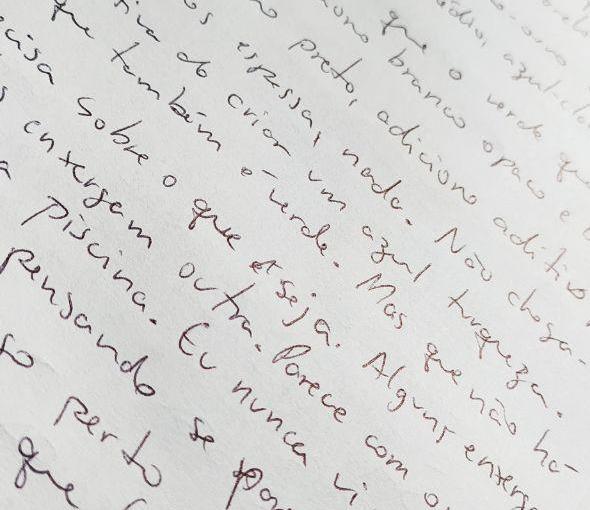 azul
que o verde que
branco opaco e o
preto, adiciono aditivo
os espessa, nada. Não chega-
tiva de criar um azul turqueza.
que também é verde. Mas que não há
cisa sobre o que seja. Alguns enxerga
s enxergam outra. Parece com o
a piscina. Eu nunca vi
pensando se
perto
que